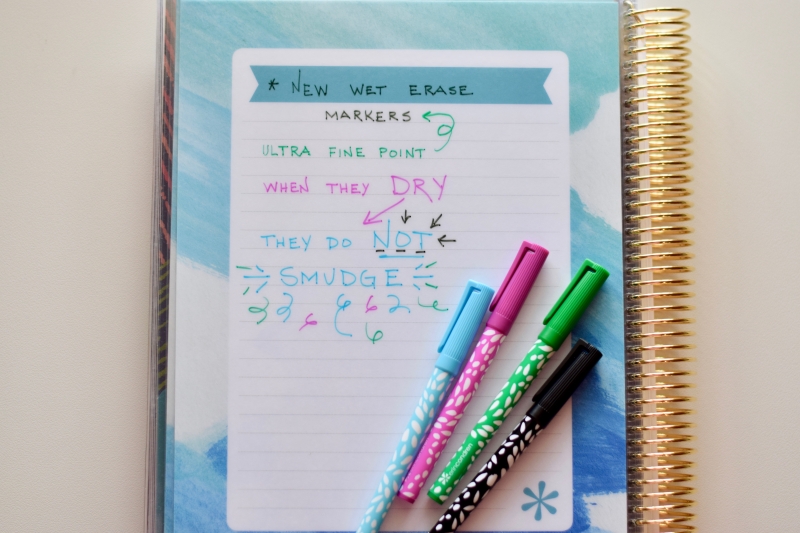 * NEW WET ERASE
MARKERS
ULTRA FINE POINT
WHEN THEY DRY
THEY DO NOT
SMUDGE